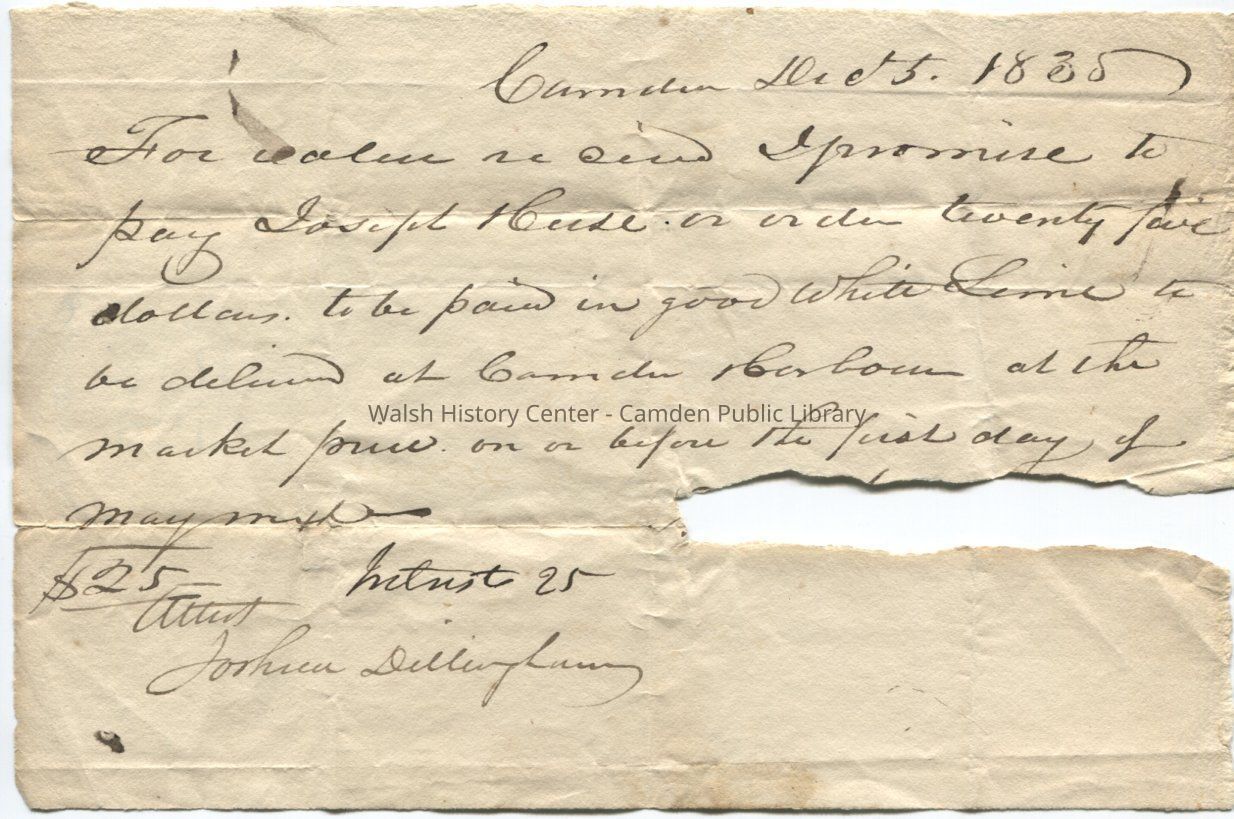 Camden Dec 5. 1835
For value re ceived I promise to
pay Joseph Huse. or order twenty five
dollars. to be paid in good White Lime to
be delivered at Camden Harbour at the
Walsh History Center - Camden Public Library
market price. on or before the first day of
May next
$25 Intrest 25
Attest
Joshua Dillingham